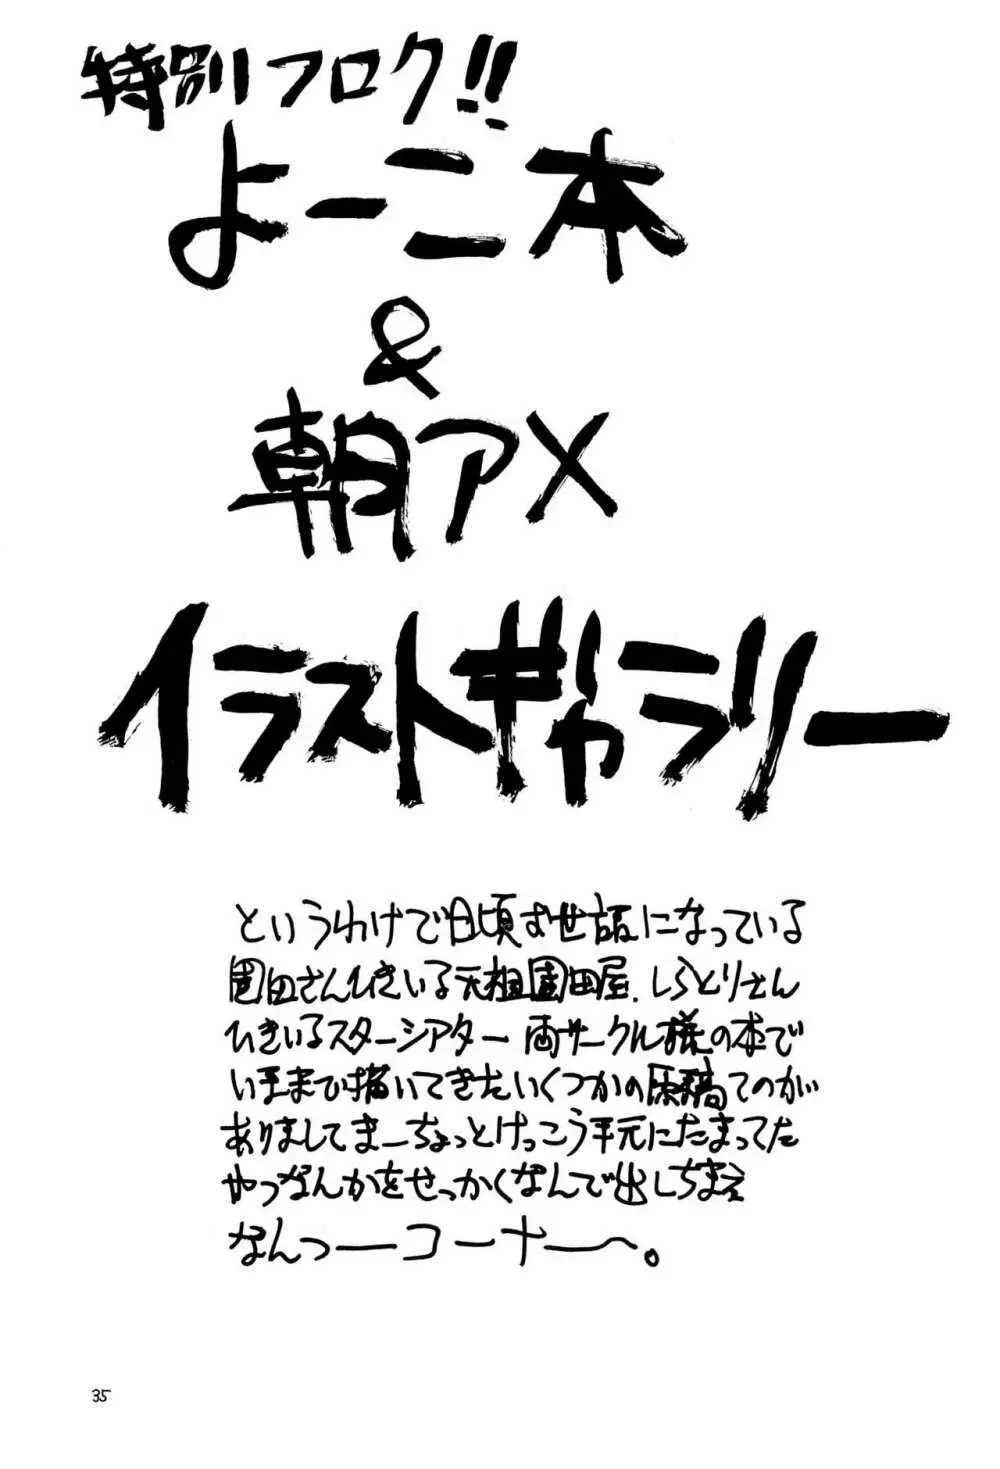 特別フロク!!
よーこ本
&
朝アメ
イラストギャラリー
というわけで日頃お世話になっている
園田さんひきいる天祖園田屋、しらとりさん
ひきいるスターシアター両サークル様の本で
いままで描いてきたいくつかの原稿てのが
ありましてまーちょっとけっこう手元にたまってた
やつなんかをせっかくなんで出しちまえ
なんつーーコーナーー。
35